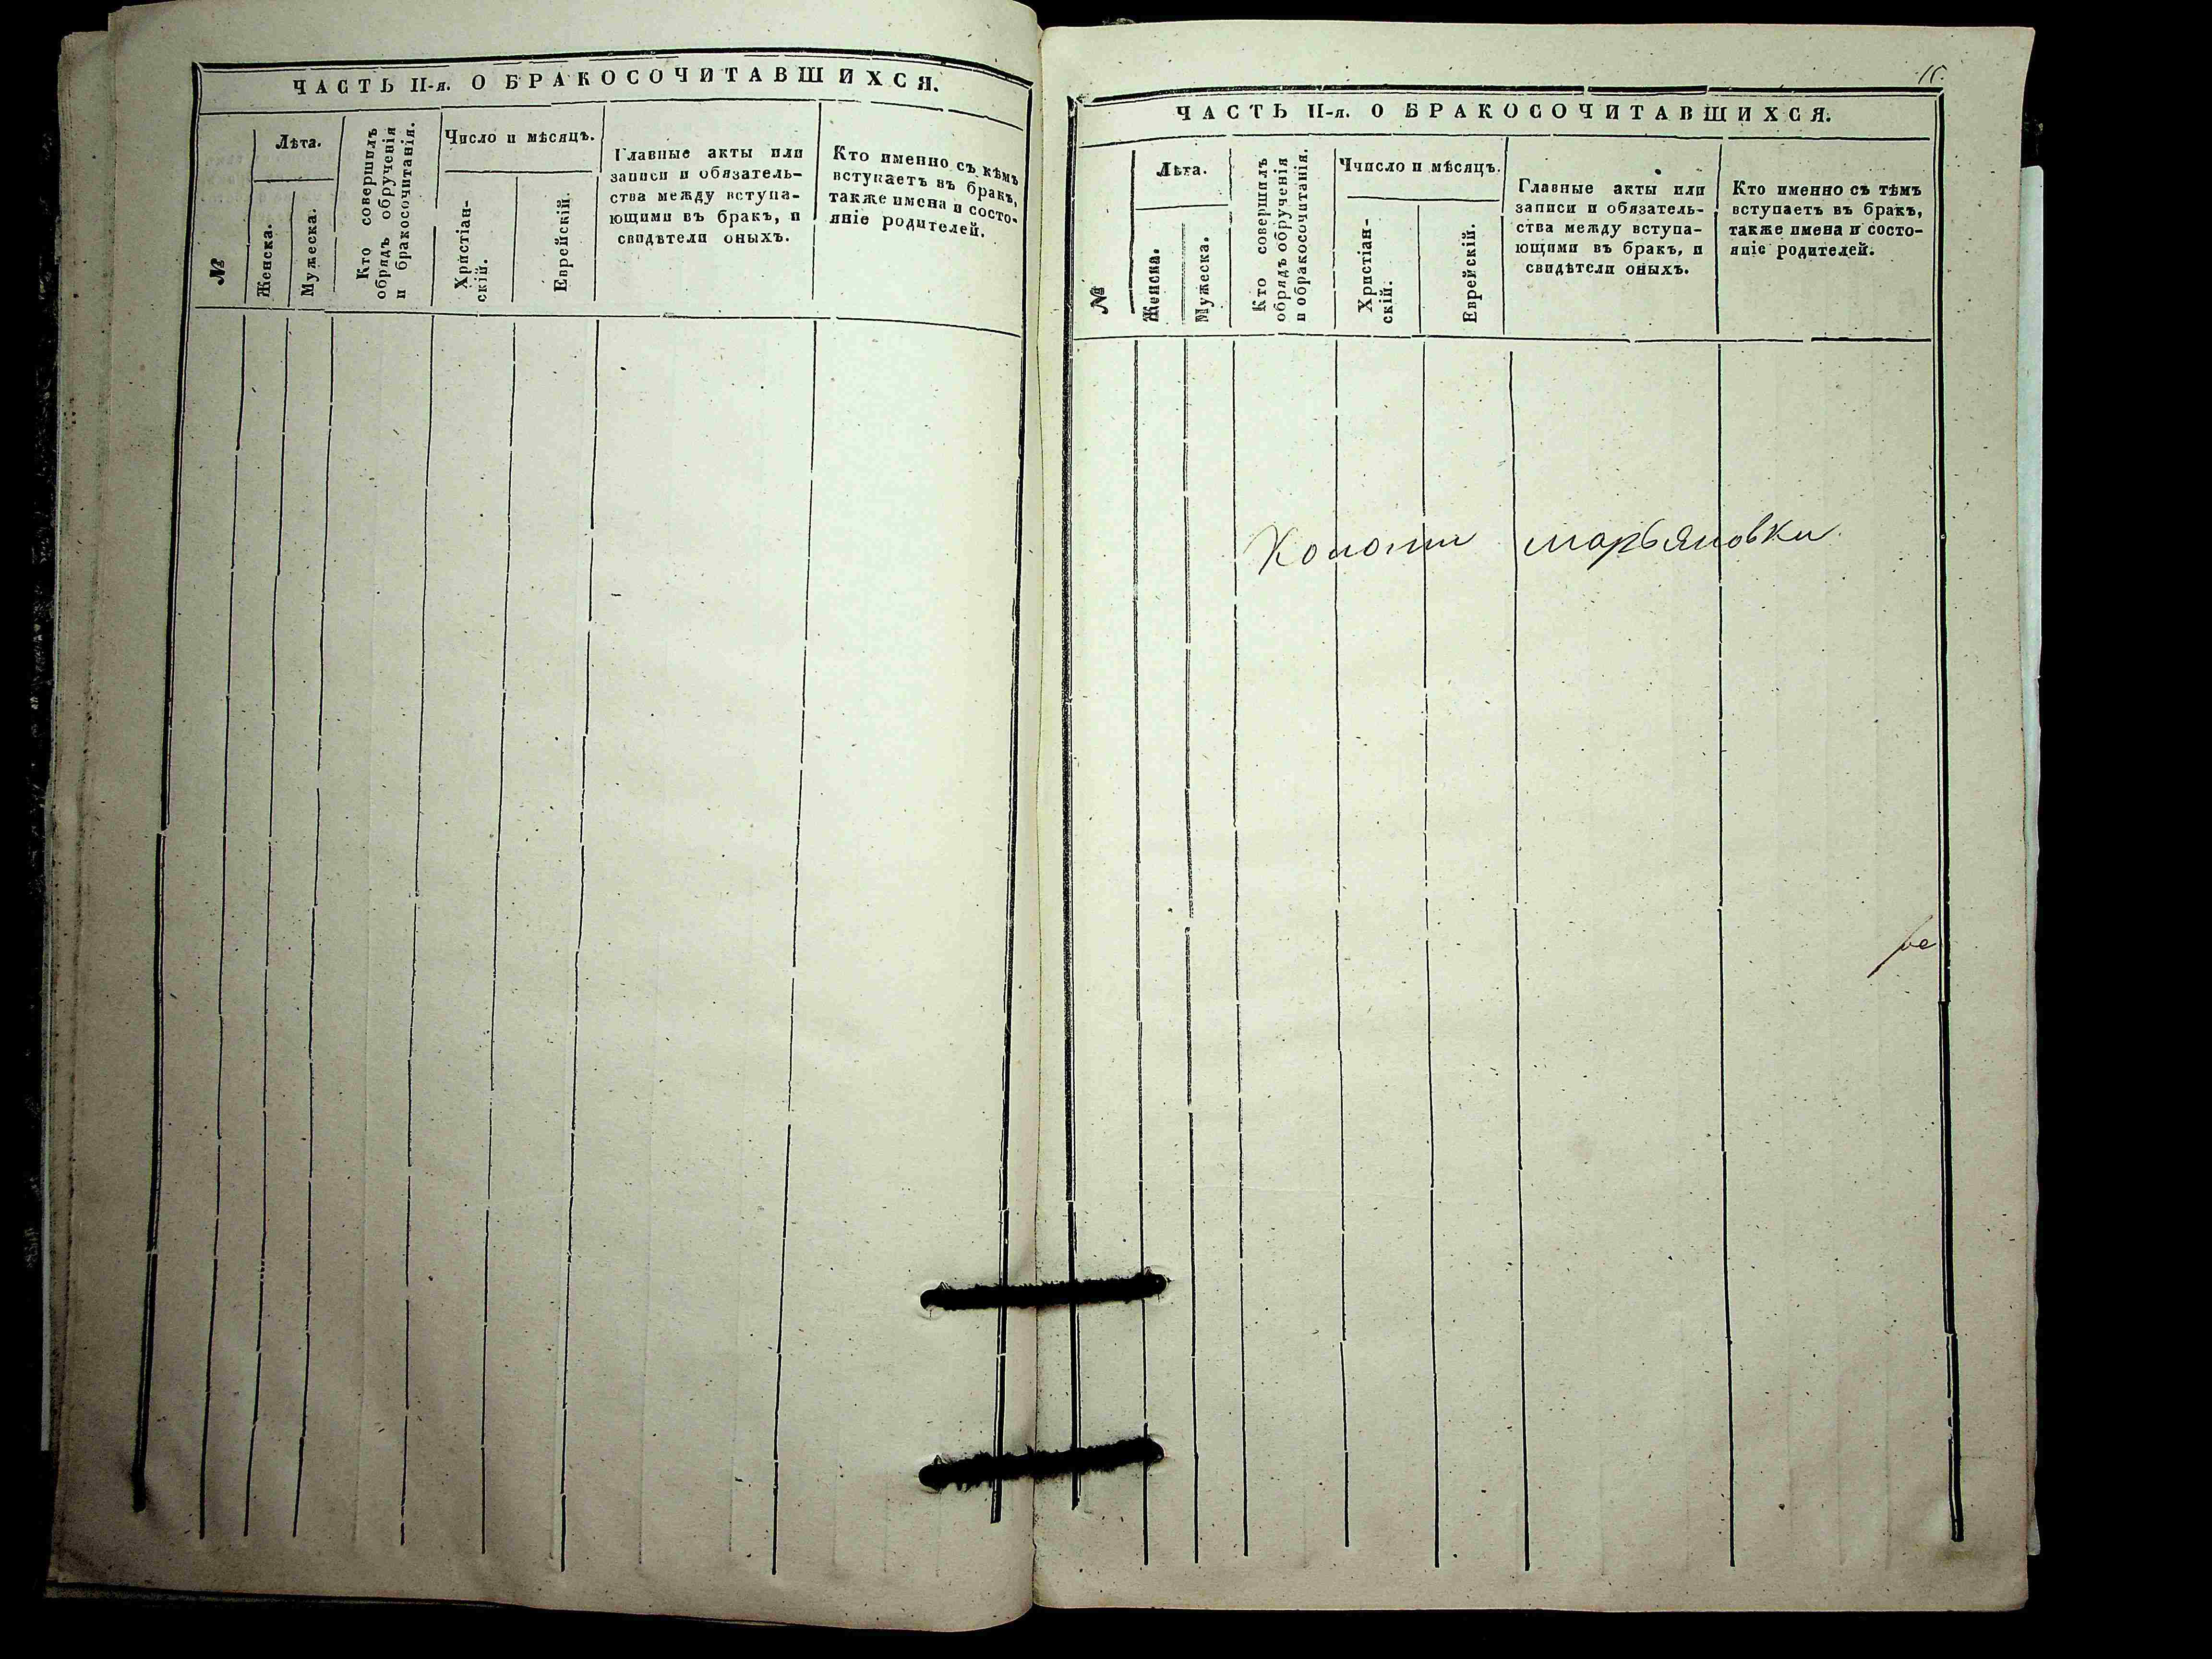 ЧАСТЬ II-я. О БРАКОСОЧИТАВШИХСЯ.
№
Лѣта.
Женска.
Мужеска.
Кто совершилъ
обрядъ обрученія
и бракосочитанія.
Число и мѣсяцъ.
Христіан-
скій.
Еврейскій.
Главные акты или
записи и обязатель-
ства между вступа-
ющими въ бракъ, и
свидѣтели оныхъ.
Кто именно съ кѣмъ
вступаетъ въ бракъ,
также имена и состо-
яніе родителей.
ЧАСТЬ II-я. О БРАКОСОЧИТАВШИХСЯ.
№
Лѣта.
Женска.
Мужеска.
Кто совершилъ
обрядъ обрученія
и обракосочитанія.
Ччисло и мѣсяцъ.
Христіан-
скій.
Еврейскій.
Главные акты или
записи и обязатель-
ства между вступа-
ющими въ бракъ, и
свидѣтели оныхъ.
Кто именно съ тѣмъ
вступаетъ въ бракъ,
также имена и состо-
яніе родителей.
Колоніи марьяновки